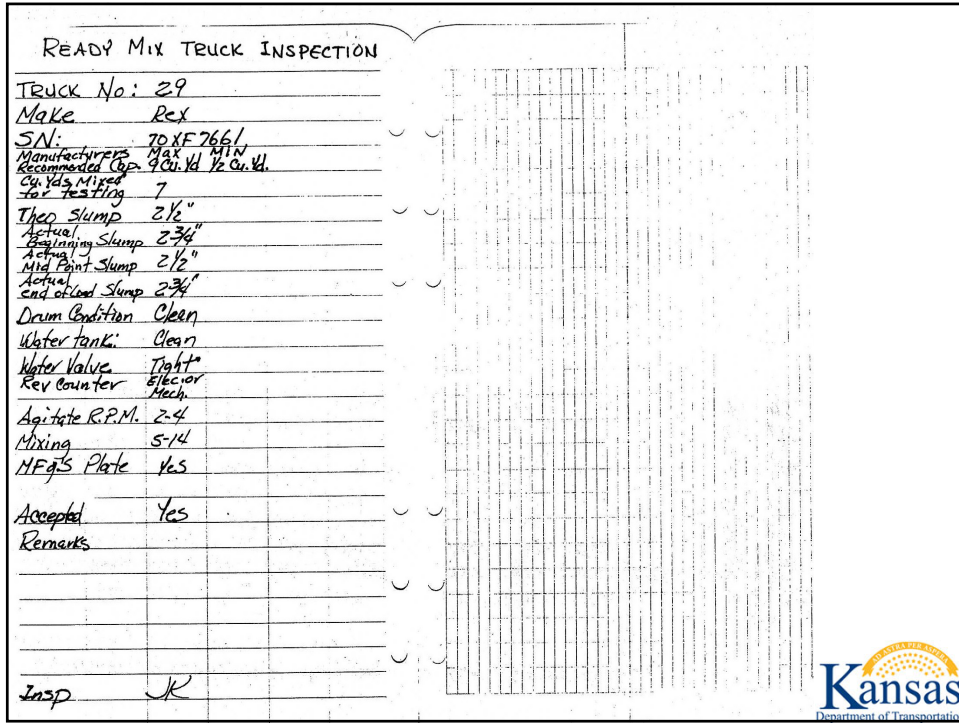 READY MIX TRUCK INSPECTION
TRUCK No: 29
Make Rex
SN: 70XF7661
Manufacturers Max MIN
Recommended Cap. 9 Cu. Yd 1/2 Cu. Yd.
Cu. Yds Mixed
for testing 7
Theo Slump 2 1/2"
Actual
Beginning Slump 2 3/4"
Actual
Mid Point Slump 2 1/2"
Actual
end of Load Slump 2 3/4"
Drum Condition Clean
Water tank: Clean
Water Valve Tight
Rev Counter Elec. or
Mech.
Agitate R.P.M. 2-4
Mixing 5-14
MFg'S Plate Yes
Accepted Yes
Remarks
Insp JK
AD ASTRA PER ASPERA
Kansas
Department of Transportation